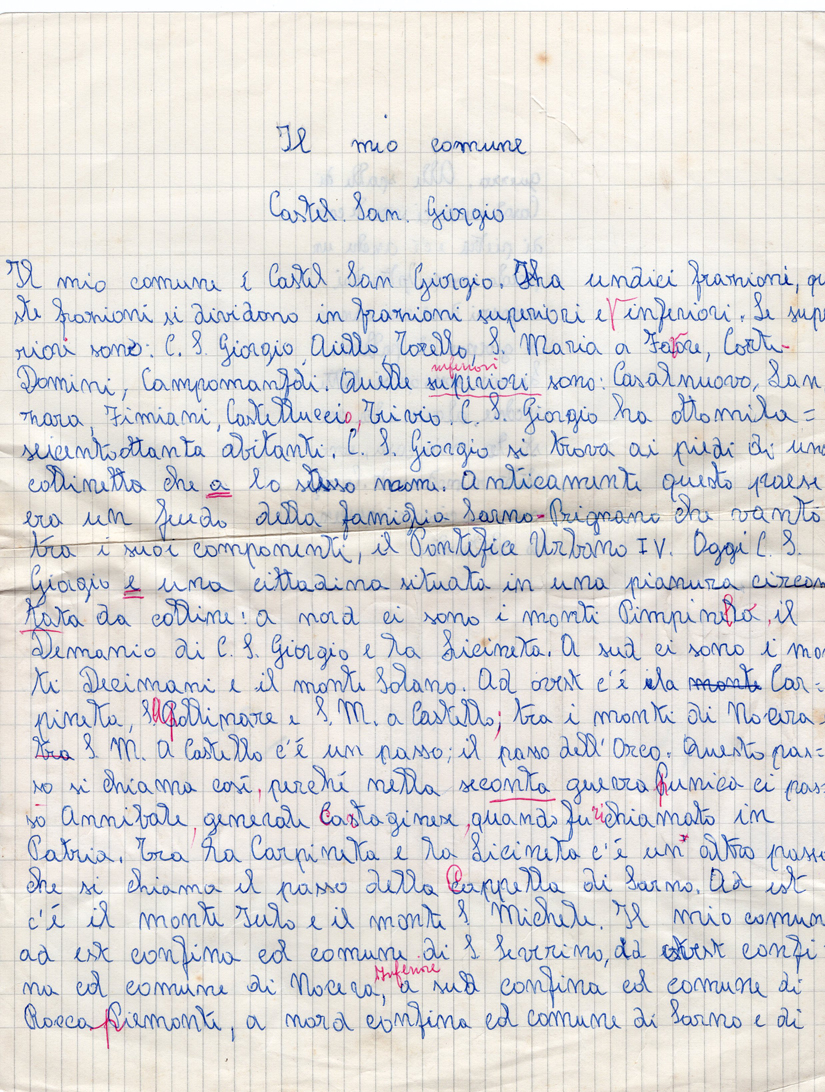 Il mio comune
Castel San Giorgio
Il mio comune è Castel San Giorgio. Ha undici frazioni, que
ste frazioni si dividono in frazioni superiori e inferiori. Le supe
riori sono: C. S. Giorgio, Aiello, Torello, S. Maria a Favore, Corti-
inferiori
Domini, Campomanfoli. Quelle superiori sono: Casalnuovo, San
mara, Fimiani, Castelluccio, Trivio C. S. Giorgio ha ottomila=
seicentottanta abitanti. C. S. Giorgio si trova ai piedi di una
collinetta che a lo stesso nome. Anticamente questo paese
era un feudo della famiglia Sarno-Prignano che vantò
tra i suoi componenti, il Pontefice Urbano IV. Oggi C. S.
Giorgio e una cittadina situata in una pianura circon
tata da colline: a nord ci sono i monti Pimpinella, il
Demanio di C. S. Giorgio e la Licineta. A sud ci sono i mon
ti Decimani e il monte Solano. Ad ovest c'è la monte Car=
pineta, S. Apollinare e S. M. a Castello; tra i monti di Nocera e
tra S. M. a Castello c'è un passo; il passo dell'Orco. Questo pas=
so si chiama così, perchè nella seconta guerra Punica ci pas=
sò Annibale, generale Castaginese, quando fu richiamato in
Patria. Tra la Carpineta e la Licineta c'è un altro passo
che si chiama il passo della Cappella di Sarno. Ad est
c'è il monte Iulo e il monte S. Michele. Il mio comune
ad est confina col comune di S. Severino, ad ovest confi
Inferiore
na col comune di Nocera, a sud confina col comune di
Rocca Piemonte, a nord confina col comune di Sarno e di